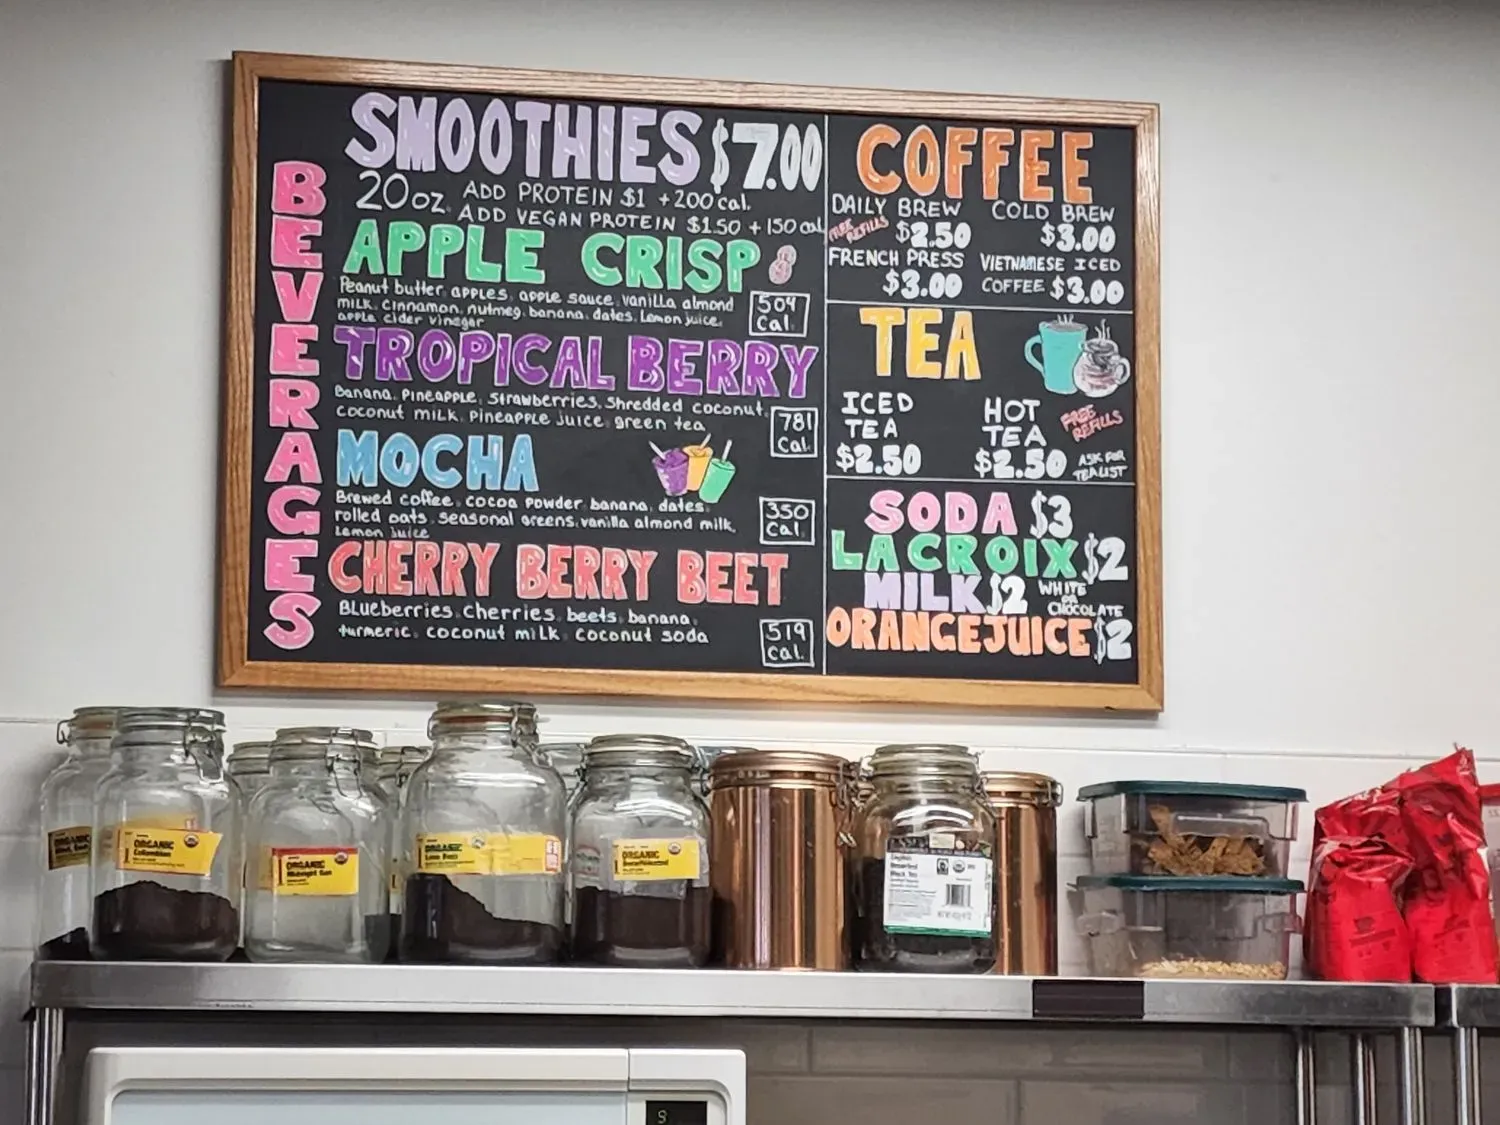 BEVERAGES
SMOOTHIES $7.00
20oz. ADD PROTEIN $1 +200 cal.
ADD VEGAN PROTEIN $1.50 +150 cal
APPLE CRISP
Peanut butter, apples, apple sauce, vanilla almond
milk, cinnamon, nutmeg, banana, dates, Lemon juice,
apple cider vinegar
504
Cal.
TROPICAL BERRY
Banana, Pineapple, Strawberries, Shredded coconut,
coconut milk, Pineapple juice, green tea
781
Cal.
MOCHA
Brewed coffee, cocoa powder, banana, dates,
rolled oats, seasonal greens, vanilla almond milk,
Lemon juice
350
Cal.
CHERRY BERRY BEET
Blueberries, Cherries, beets, banana,
turmeric, coconut milk, coconut soda
519
Cal.
COFFEE
DAILY BREW
FREE
REFILLS
$2.50
COLD BREW
$3.00
FRENCH PRESS
$3.00
VIETNAMESE ICED
COFFEE $3.00
TEA
ICED
TEA
$2.50
HOT
TEA
$2.50
FREE
REFILLS
ASK FOR
TEA LIST
SODA $3
LACROIX $2
MILK $2
WHITE
OR
CHOCOLATE
ORANGE JUICE $2
ORGANIC
ORGANIC
Colombian
ORGANIC
Midnight Sun
ORGANIC
Love Buzz
ORGANIC
Decaffeinated
English
Breakfast
Black Tea